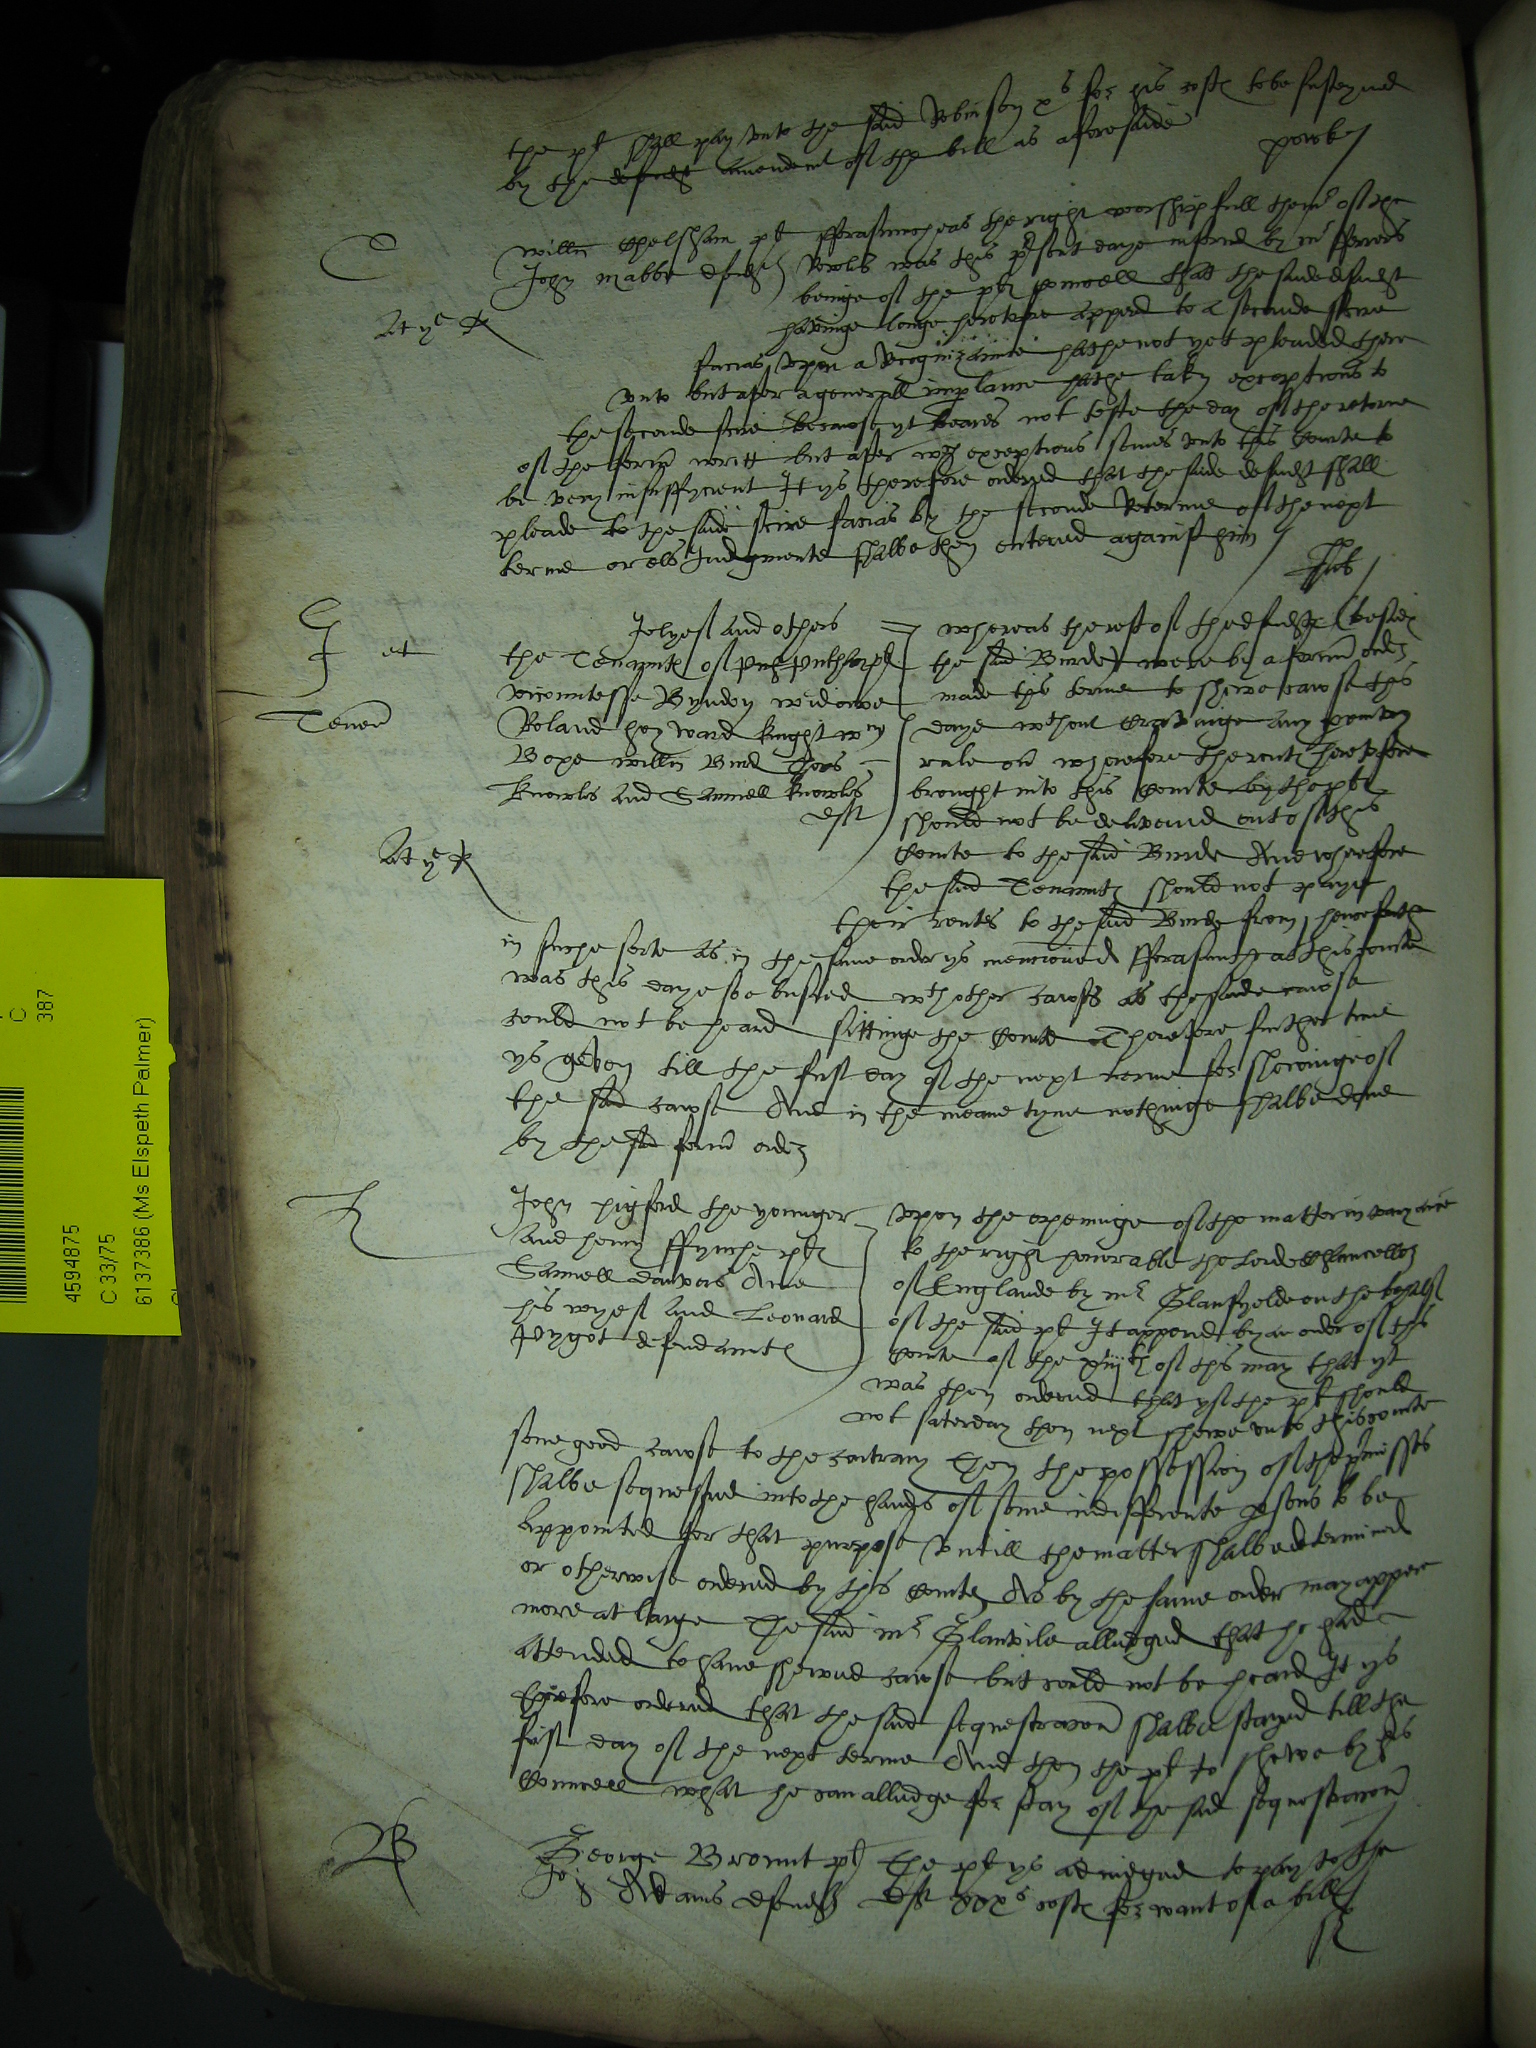 the pl shall play unto the said Robinson xs for his costes to be susteyned
by the defendt amendmt of the bill as aforesaide
powle
C
Willm Chelsham pl fforasmuche as the right worshipfull the mr of the
John Mabbe defendt Rowles was this present daye informed by mr fferrers
beinge of the ples councell that the saide defendt
At ye R
havinge longe heretofore appered to a seconde scire
facias upon a Recognizaunce hathe not yet pleaded there
unto but after a generall imparlaunce hathe taken exceptions to
the seconde scire because yt beares not teste the day of the retorne
of the former writt but after wch exceptions semes unto this Courte to
be very insuffycient It ys therefore ordered that the saide defendt shall
pleade to the saide scire facias by the seconde Retorne of the next
terme or els Judgmente shalbe then entered against him
J et
Tenen
and others
the Tenauntes of
vicountesse Byndon widowe
Roland heyward knight wm
Boxe willm Burd Thoms
knowles and Samuell knowles
deft
whereas the rest of the defendtes (besides
the said Burde) were by a former order
made this terme to shewe cawse this
daye wthout any
rule on wherefore the rentes heretofore
brought into this Courte by the ples
should not be delivered out of this
Courte to the said Burde And wherefore
At ye R
the said Tenauntes should not paye
their rentes to the said Burde from henceforthe
in suche sorte as in the same order ys mencioned fforasmuch as this courte
was this daye soe busied wth other cawses as the saide cawse
could not be heard sittinge the Courte Therefore further time
ys geven till the first day of the next terme for shewinge of
the said cawse And in the meane tyme nothinge shalbe done
by the said former order
John pigford the younger
and henry ffynche ples
Samuell Danvers And
his wyef and Leonard
Pygot defendauntes
Upon the openinge of the matter
to the right honorable the Lorde Chauncellor
of Englande by mr Glanfyelde on the behalf
of the said pl It appered by an order of this
Courte of the xiiijth of this may that yt
was then ordered that yf the pl should
not saterday then next shewe unto this courte
some good cawse to the contrary Then the possession of the premisses
shalbe sequestred into the handes of some indifferente persons to be
appointed for that purpose Untill the matter shalbe determined
or otherwise ordered by this Courte As by the same order may apper
more at large The said mr Glanvile alledged that he had
attended to have shewed cawse but could not be heard It ys
therefore ordered that the said sequestracon shalbe stayed till the
first day of the next terme And then the pl to shewe by his
Councell what he can alledge for stay of the said sequestracon
B
George Brount pl The pl ys adiudged to play to the
Jo: Adams defendt deft xxxs costes for want of a bill
4594875
C 33/75
6137386 (Ms Elspeth Palmer)
C
387